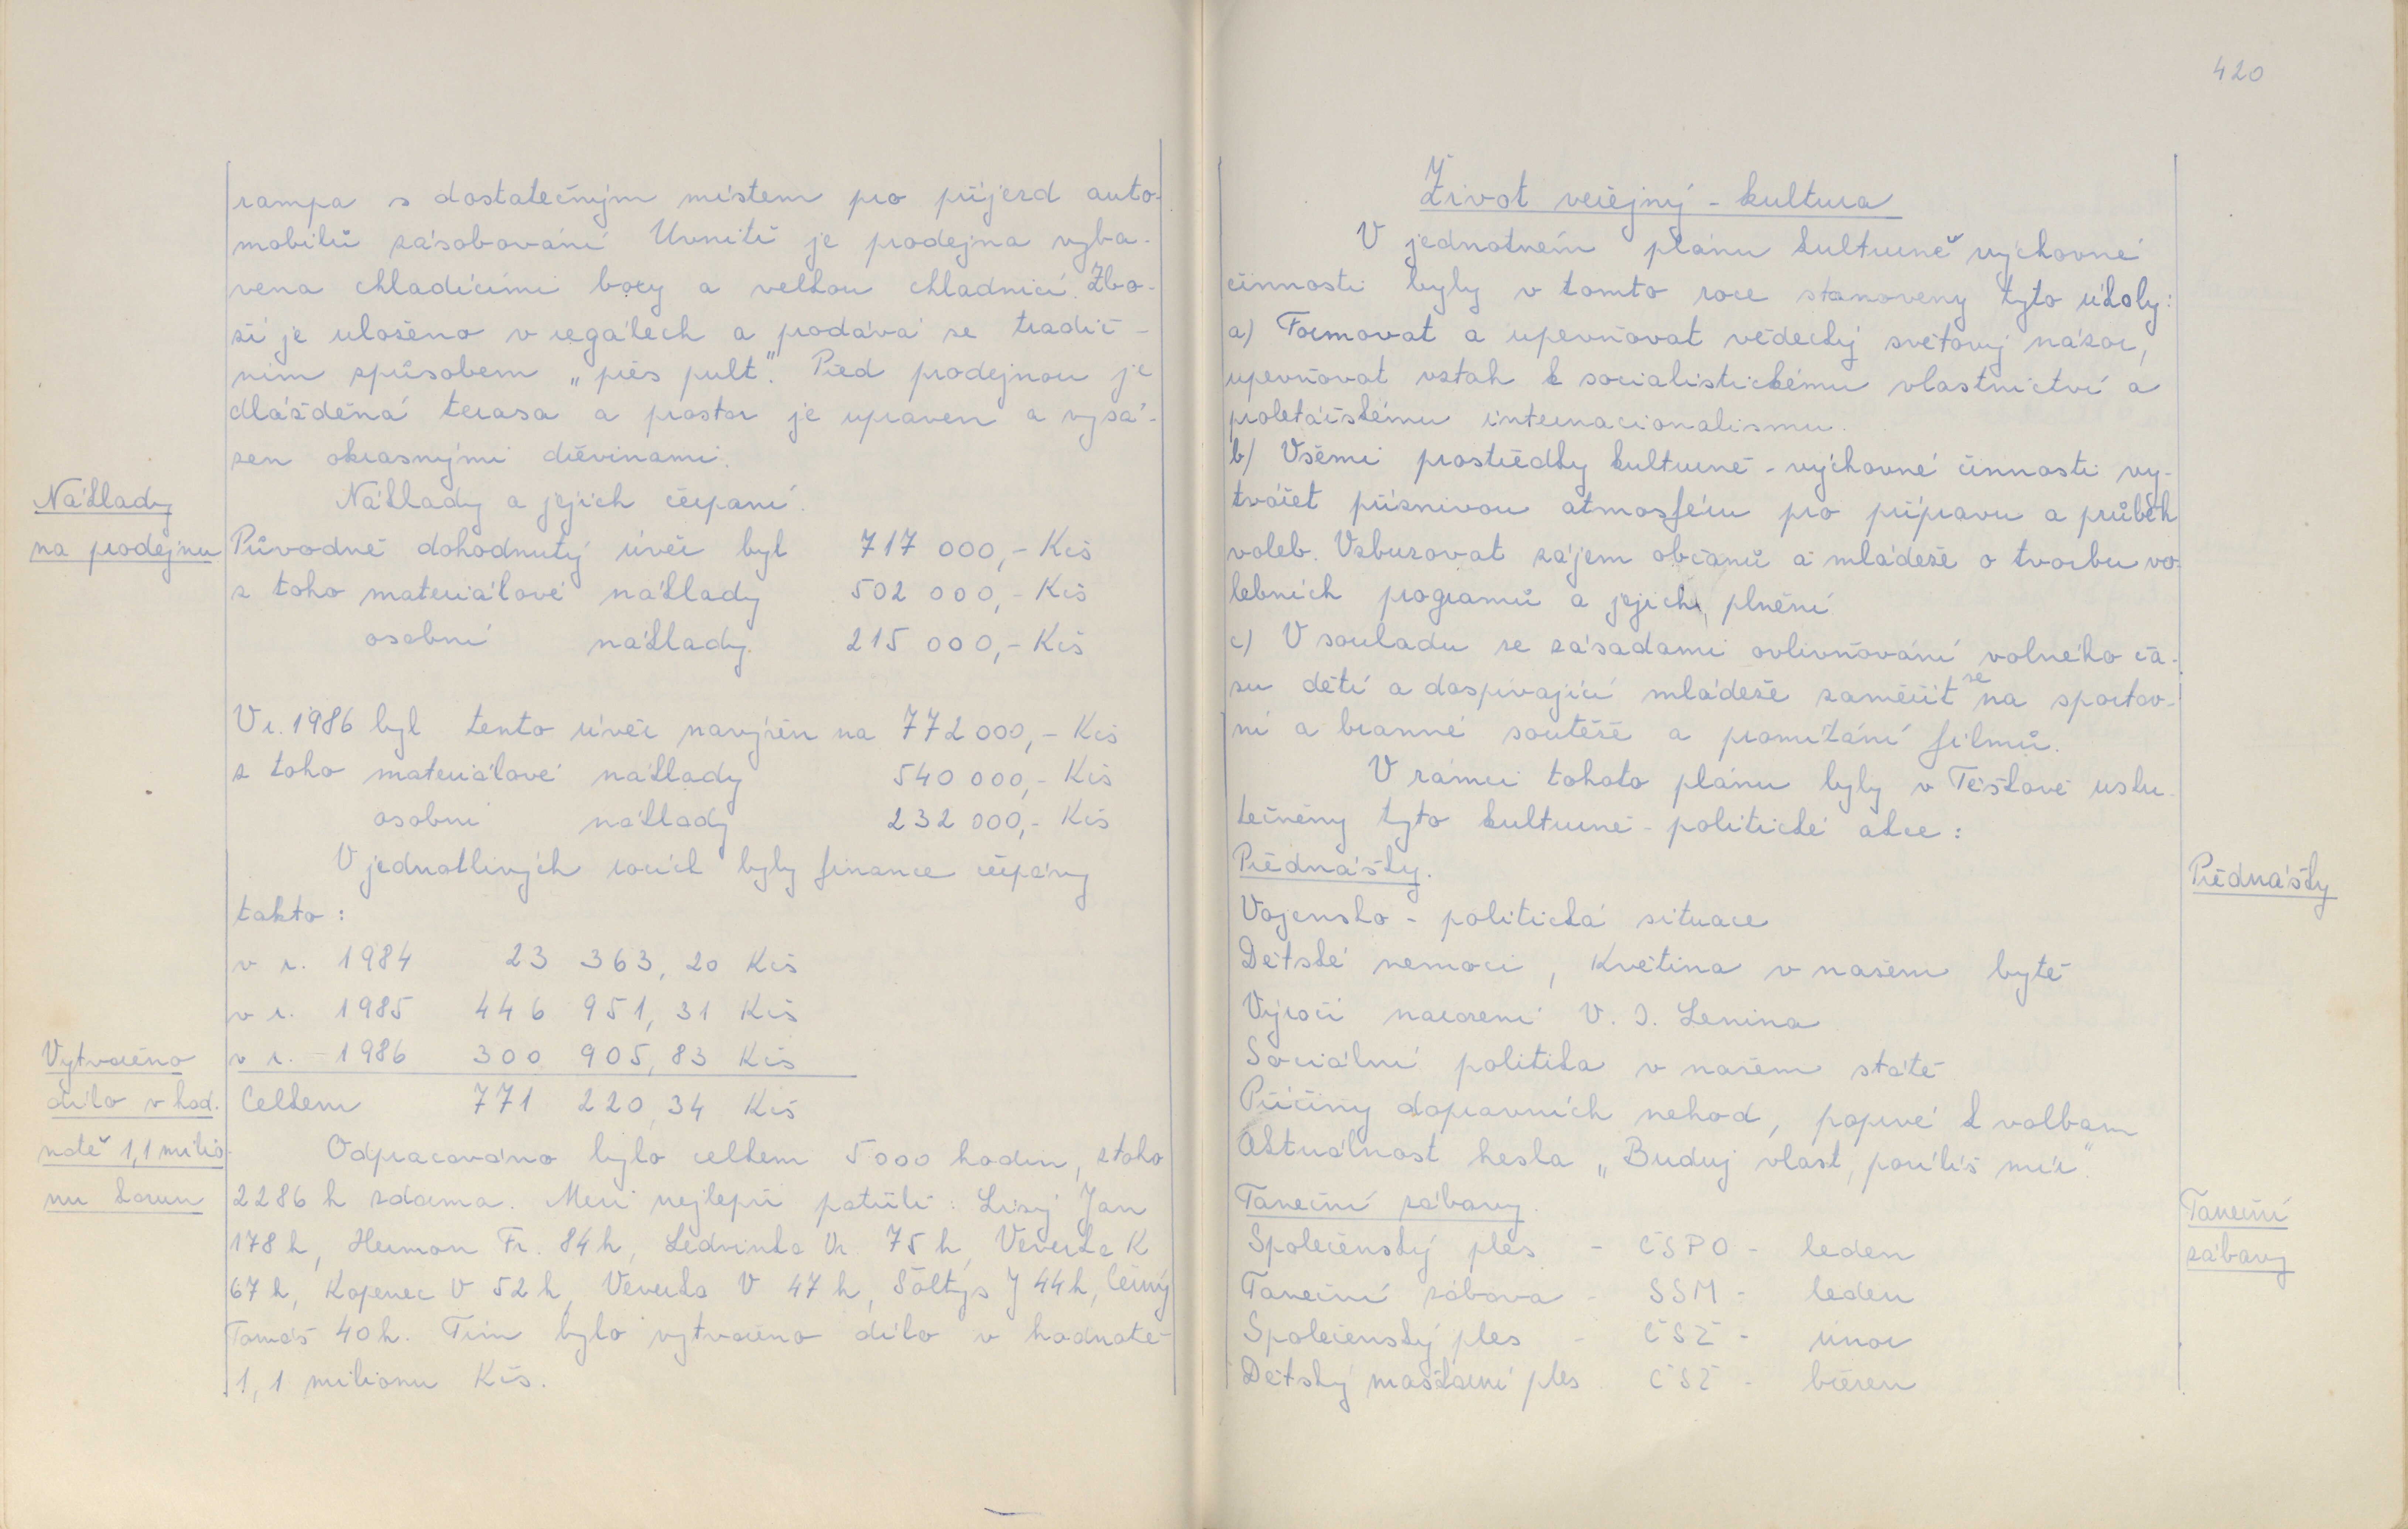 rampa s dostatečným místem pro příjezd auto-
mobilů zásobování Uvnitř je prodejna vyba-
vena chladícími boxy a velkou chladnicí. Zbo-
ží je uloženo v regálech a prodává se tradič-
ním způsobem „přes pult". Před prodejnou je
dlážděná terasa a prostor je upraven a vysá-
zen okrasnými dřevinami.
Náklady a jejich čerpaní.
Náklady
na prodejnu
Původně dohodnutý úvěr byl 717 000,- Kčs
z toho materiálové náklady 502 000,- Kčs
osobní náklady. 215 000,- Kčs
V r. 1986 byl tento úvěr navýšen na 772 000,- Kčs
z toho materiálové náklady 540 000,- Kčs
osobní náklady 232 000,- Kčs
V jednotlivých rocích byly finance čerpány
takto :
v r. 1984 23 363, 20 Kčs
v r. 1985 446 951, 31 Kčs
v r. - 1986 300 905, 83 Kčs
Celkem 771 220, 34 Kčs
Vytvořeno
dílo v hod.
notě 1,1 milió
nu korun
Odpracováno bylo celkem 5 000 hodin, z toho
2286 h zdarma. Mezi nejlepší patřili : Lisý Jan
178 h, Hermon Fr. 84 h, Ledvinka Vr. 75 h, Veverka K
67 h, Kopenec V 52 h, Veverka V 47 h, Šoltys J 44 h, Černý
Tomáš 40 h. Tím bylo vytvořeno dílo v hodnotě
1, 1 milionu Kčs.
420
Život veřejný - kultura
V jednotném plánu kulturně výchovné
činnosti byly v tomto roce stanoveny tyto úkoly :
a) Formovat a upevňovat vědecký světový názor,
upevňovat vztah k socialistickému vlastnictví a
proletářskému internacionalismu.
b) Všemi prostředky kulturně - výchovné činnosti vy-
tvářet příznivou atmosféru pro přípravu a průběh
voleb. Vzbuzovat zájem občanů a mládeže o tvorbu vo-
lebních programů a jejich plnění.
c) V souladu se zásadami ovlivňování volného ča-
su dětí a dospívající mládeže zaměřit se na sportov-
ní a branné soutěže a promítání filmů.
V rámci tohoto plánu byly v Těškově usku-
tečněny tyto kulturně - politické akce :
Přednášky.
Přednášky
Vojensko - politická situace
Dětské nemoci, Květina v našem bytě
Výročí narození V. I. Lenina
Sociální politika v našem státě
Příčiny dopravních nehod, poprvé k volbam
Aktuálnost hesla „Buduj vlast, posílíš mír"
Taneční zábavy.
Taneční
zábavy
Společenský ples - ČSPO - leden
Taneční zábava - SSM - leden
Společenský ples - ČSŽ - únor
Dětský maškarní ples ČSŽ - březen